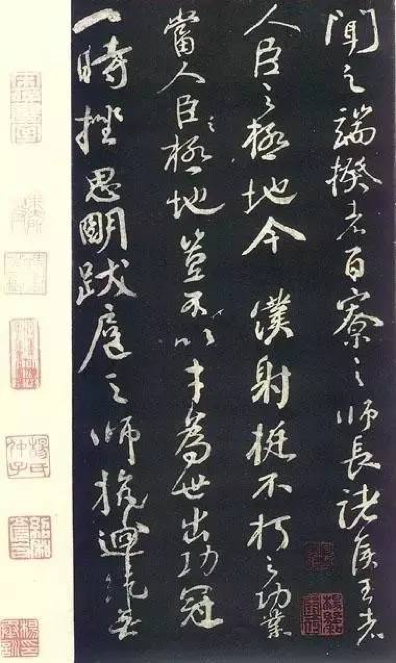 聞之端揆者百寮之師長諸侯王者
人臣之極地今僕射挺不朽之功業
當人臣之極地豈不以才為世出功冠
一時挫思明跋扈之師抗迴紇無
楊氏仲子